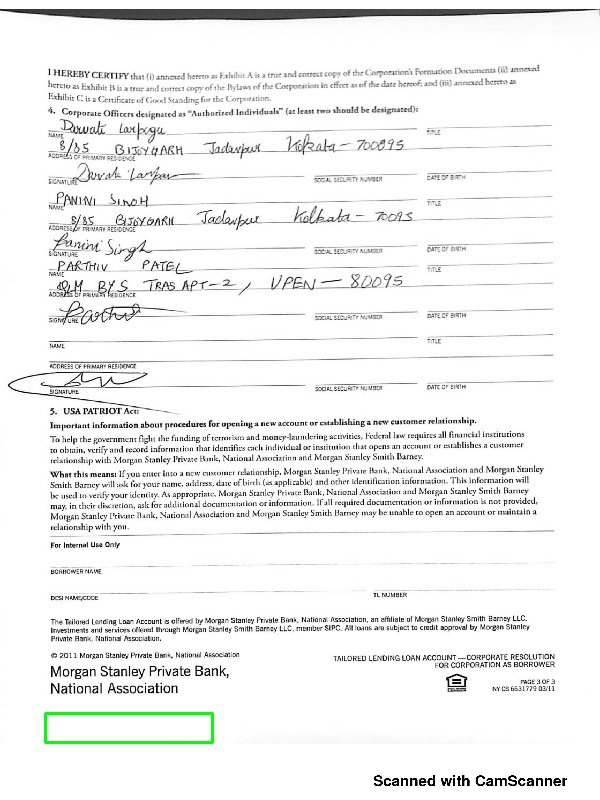 I HEREBY CERTIFY that (i) annexed hereto as Exhibit A is a true and correct copy of the Corporation's Formation Documents (ii) annexed
hereto as Exhibit B is a true and correct copy of the Bylaws of the Corporation in effect as of the date hereof; and (iii) annexed hereto as
Exhibit C is a Certificate of Good Standing for the Corporation.
4. Corporate Officers designated as "Authorized Individuals" (at least two should be designated):
NAME TITLE
8/85 BIJOYGARH Jadavpur Kolkata - 700095
ADDRESS OF PRIMARY RESIDENCE
SIGNATURE SOCIAL SECURITY NUMBER DATE OF BIRTH
PANINI SINGH
NAME TITLE
8/85 BIJOYGARH Jadavpur Kolkata - 70095
ADDRESS OF PRIMARY RESIDENCE
Panini Singh
SIGNATURE SOCIAL SECURITY NUMBER DATE OF BIRTH
PARTHIV PATEL
NAME TITLE
BYS TRAS APT-2, UPEN - 80095
ADDRESS OF PRIMARY RESIDENCE
Parthiv
SIGNATURE SOCIAL SECURITY NUMBER DATE OF BIRTH
NAME TITLE
ADDRESS OF PRIMARY RESIDENCE
SIGNATURE SOCIAL SECURITY NUMBER DATE OF BIRTH
5. USA PATRIOT Act:
Important information about procedures for opening a new account or establishing a new customer relationship.
To help the government fight the funding of terrorism and money-laundering activities, Federal law requires all financial institutions
to obtain, verify and record information that identifies each individual or institution that opens an account or establishes a customer
relationship with Morgan Stanley Private Bank, National Association and Morgan Stanley Smith Barney.
What this means: If you enter into a new customer relationship, Morgan Stanley Private Bank, National Association and Morgan Stanley
Smith Barney will ask for your name, address, date of birth (as applicable) and other identification information. This information will
be used to verify your identity. As appropriate, Morgan Stanley Private Bank, National Association and Morgan Stanley Smith Barney
may, in their discretion, ask for additional documentation or information. If all required documentation or information is not provided,
Morgan Stanley Private Bank, National Association and Morgan Stanley Smith Barney may be unable to open an account or maintain a
relationship with you.
For Internal Use Only
BORROWER NAME
DESI NAME/CODE TL NUMBER
The Tailored Lending Loan Account is offered by Morgan Stanley Private Bank, National Association, an affiliate of Morgan Stanley Smith Barney LLC.
Investments and services offered through Morgan Stanley Smith Barney LLC, member SIPC. All loans are subject to credit approval by Morgan Stanley
Private Bank, National Association.
© 2011 Morgan Stanley Private Bank, National Association
TAILORED LENDING LOAN ACCOUNT—CORPORATE RESOLUTION
FOR CORPORATION AS BORROWER
Morgan Stanley Private Bank,
National Association
PAGE 3 OF 3
NY CS 6631779 03/11
Scanned with CamScanner